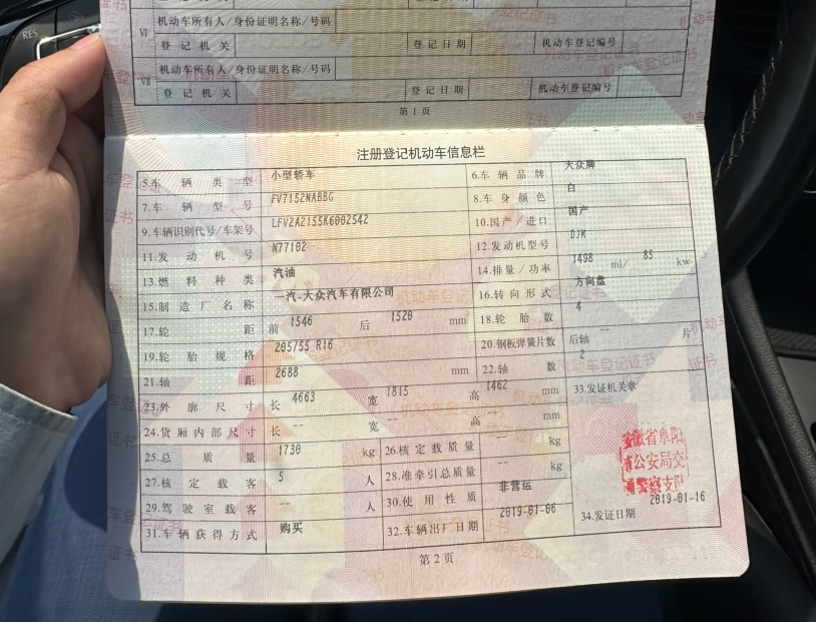 RES
VI 机动车所有人/身份证明名称/号码
登记机关 登记日期 机动车登记编号
VII 机动车所有人/身份证明名称/号码
登记机关 登记日期 机动车登记编号
第1页
注册登记机动车信息栏
5.车辆类型 小型轿车 6.车辆品牌 大众牌
7.车辆型号 FV7152NABBG 8.车身颜色 白
9.车辆识别代号/车架号 LFV2A2155K6002542 10.国产/进口 国产
11.发动机号 N77102 12.发动机型号 DJK
13.燃料种类 汽油 14.排量/功率 1498 ml/ 85 kw
15.制造厂名称 一汽-大众汽车有限公司 16.转向形式 方向盘
17.轮距 前 1546 后 1520 mm 18.轮胎数 4
19.轮胎规格 205/55 R16 20.钢板弹簧片数 后轴 -- 片
21.轴距 2688 mm 22.轴数 2
23.外廓尺寸 长 4663 宽 1815 高 1462 mm 33.发证机关章
24.货厢内部尺寸 长 -- 宽 -- 高 -- mm
25.总质量 1730 kg 26.核定载质量 -- kg
27.核定载客 5 人 28.准牵引总质量 -- kg
29.驾驶室载客 -- 人 30.使用性质 非营运
31.车辆获得方式 购买 32.车辆出厂日期 2019-01-06 34.发证日期 2019-01-16
安徽省阜阳
市公安局交
通警察支队
第2页